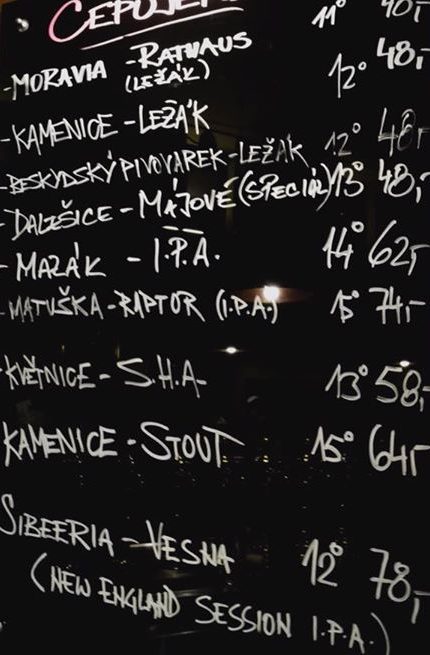 ČEPUJEM
-MORAVIA -RATHAUS 11° 40,-
(LEŽÁK)
-KAMENICE -LEŽÁK 12° 48,-
-BESKYDSKÝ PIVOVÁREK-LEŽÁK 12° 48,-
-DALEŠICE - MÁJOVÉ (SPECIÁL) 13° 48,-
-MAZÁK - I.P.A. 14° 62,-
-MATUŠKA-RAPTOR (I.P.A.) 15° 74,-
-KVĚTNICE - S.H.A. 13° 58,-
KAMENICE - STOUT 15° 64,-
SIBEERIA - VESNA 12° 78,-
(NEW ENGLAND SESSION I.P.A.)